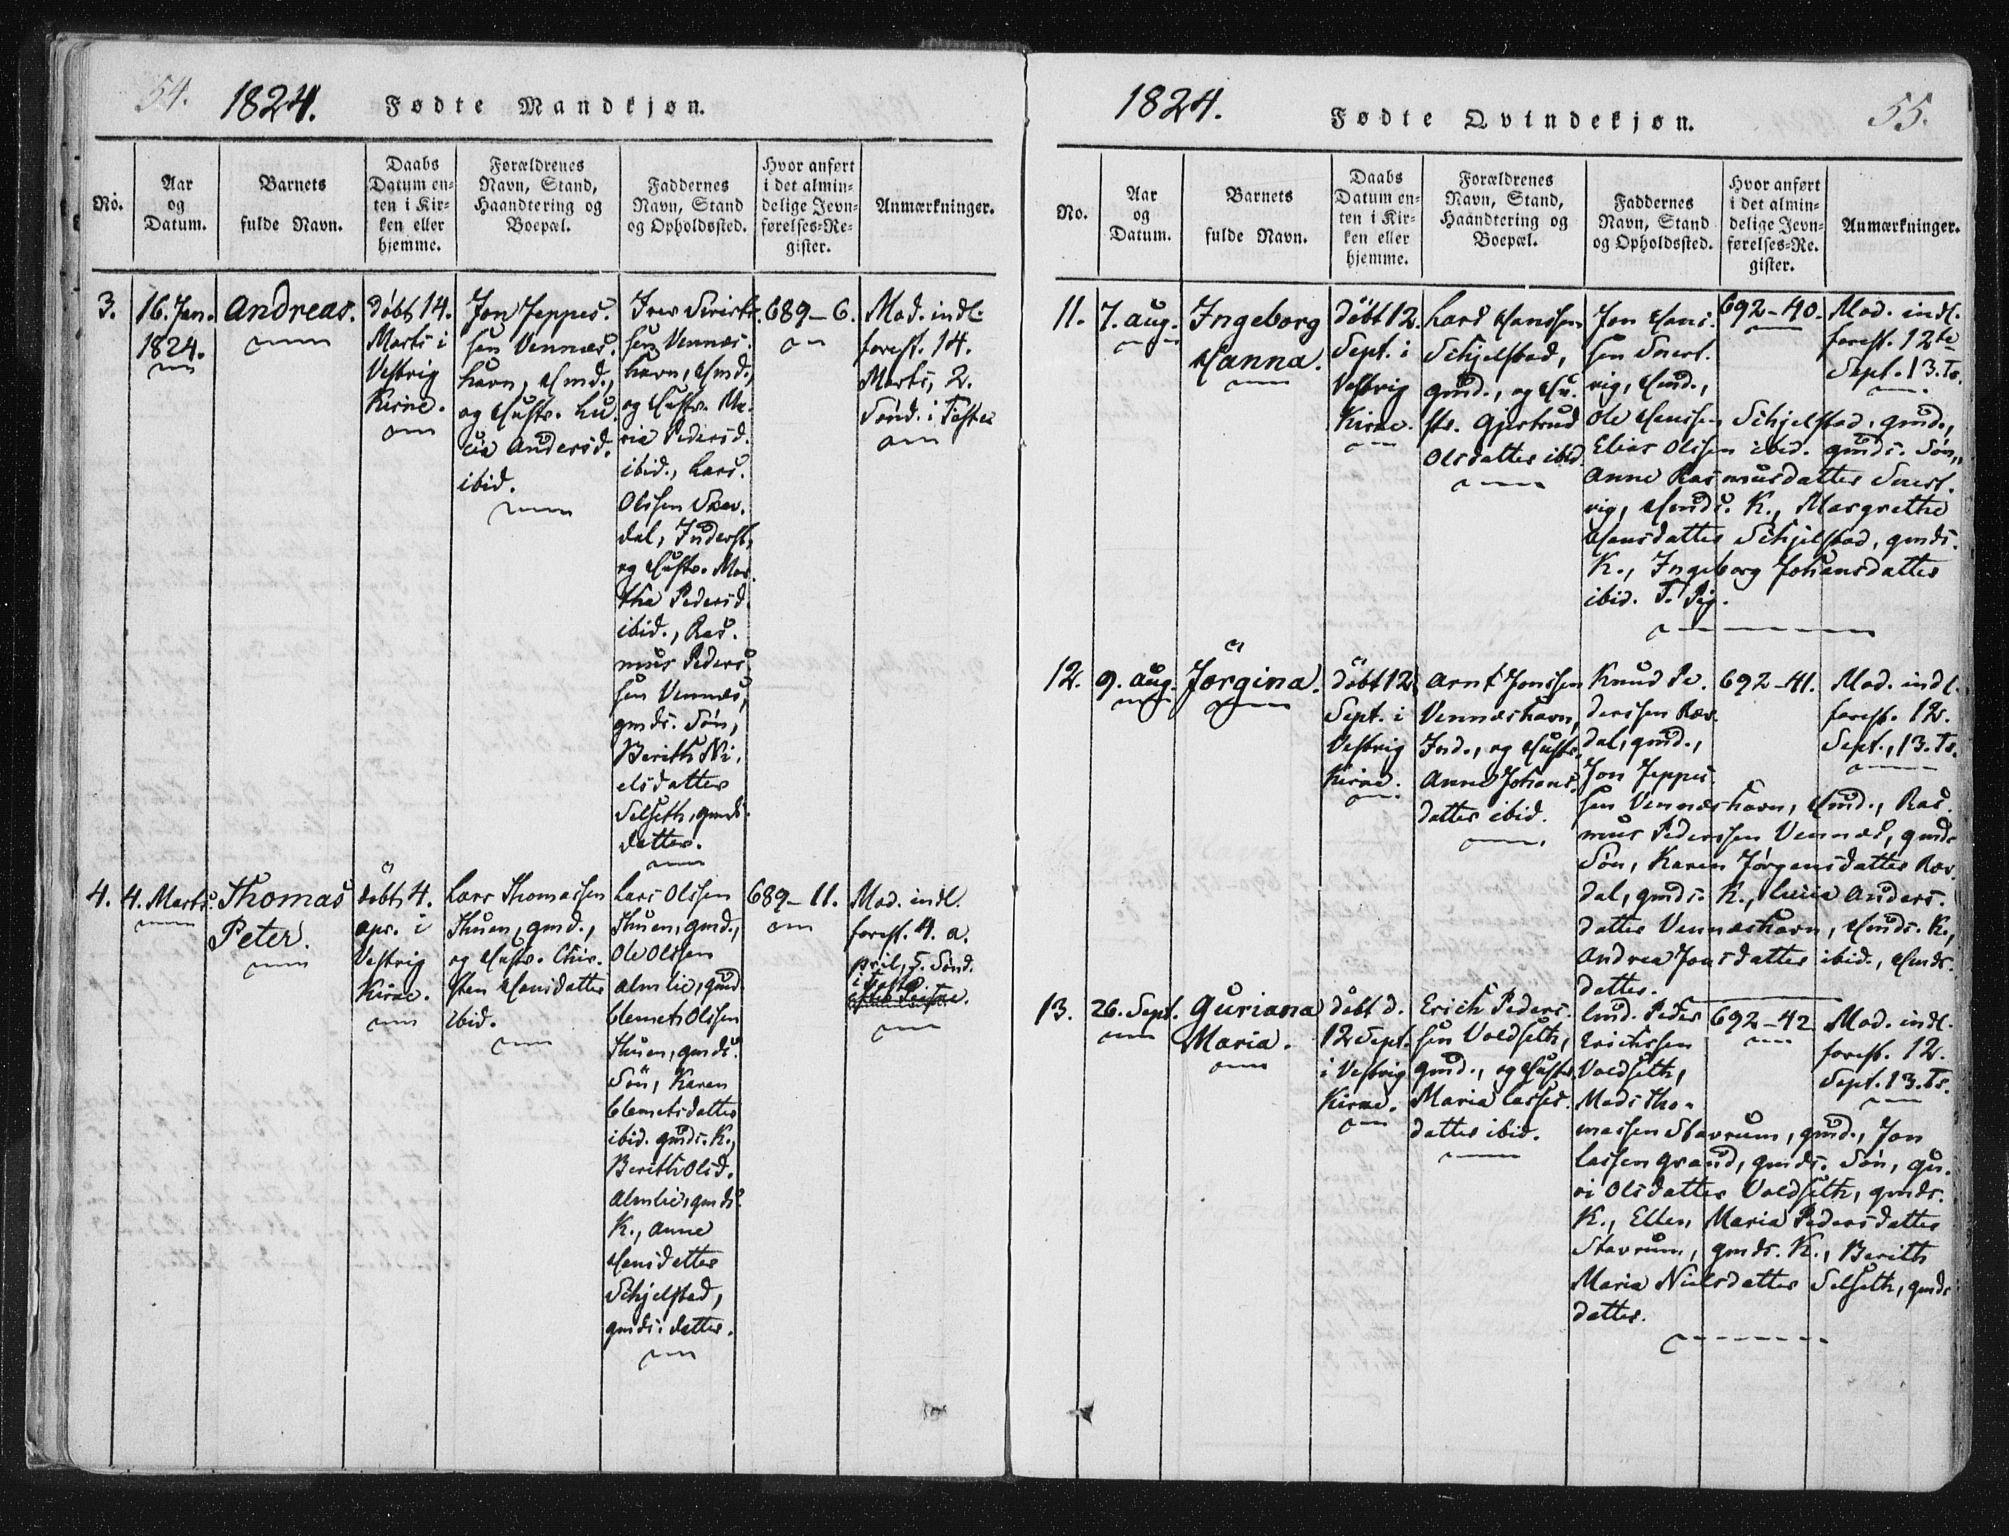 54.
1824.
Fødte Mandkjøn.
No.
Aar
og
Datum.
Barnets
fulde Navn.
Daabs
Datum en-
ten i Kir-
ken eller
hjemme.
Forældrenes
Navn, Stand,
Haandtering og
Boepæl.
Faddernes
Navn, Stand
og Opholdssted.
Hvor anført
i det almin-
delige Jevn-
førelses-Re-
gister.
Anmærkninger.
3.
16. Jan.
1824.
Andreas.
døbt 14.
Marts i
Vestvig
Kirke.
Jon Jeppes-
sen Vennæs-
havn, Hmd.,
og Hustr. Lu-
cia Andersd.
ibid.
sen Vennæs-
havn, Hmd.,
og Hustr. Ma-
ria Pedersd.
ibid., Lars
Olssen
dal, Inderst,
og Hustr. Mar-
tha Pedersd.
ibid., Ras-
mus Peders-
sen Vennæs,
gmds. Søn,
Berith Ni-
elsdatter
Selseth, gmds.
datter.
689-6.
Mod. indl.
forest. 14.
Marts, 2.
Sønd. i Fasten
4.
4. Marts.
Thomas
Peter.
døbt 4.
apr. i
Vestvig
Kirke.
Lars Thomassen
Thuen, gmd.,
og Hustr. Chir-
sten Hansdatter
ibid.
Lars Olssen
Thuen, gmd.,
Ole Olssen
Almlie, gmd.
Clemet Olssen
Thuen, gmds.
Søn, Karen
Clemetsdatter
ibid. gmds. K.,
Berith Olsd.
Almlie, gmds.
K., Anne
Hansdatter
Schjelstad,
gmds. datter.
689-11.
Mod. indl.
forest. 4. a-
pril, 5. Sønd.
i Fasten.
1824.
Fødte Qvindekjøn.
55.
No.
Aar
og
Datum.
Barnets
fulde Navn.
Daabs
Datum en-
ten i Kir-
ken eller
hjemme.
Forældrenes
Navn, Stand,
Haandtering og
Boepæl.
Faddernes
Navn, Stand
og Opholdssted.
Hvor anført
i det almin-
delige Jevn-
førelses-Re-
gister.
Anmærkninger.
11.
7. aug.
Ingeborg
Hanna.
døbt 12.
Sept. i
Vestvig
Kirke.
Lars Hanssen
Schjelstad,
gmd., og Hu-
str. Gjertrud
Olsdatter ibid.
Jon Hans-
sen
vig, Hmd.,
Ole Hanssen Schjelstad, gmd.,
Elias Olssen ibid. gmds. Søn,
Anne Rasmusdatter
vig, Hmds. K., Margrethe
Hansdatter Schjelstad, gmds.
K., Ingeborg Johansdatter
ibid. T. Pig.
692-40.
Mod. indl.
forest. 12te
Sept. 13. Tr.
12.
9. aug.
Jørgina.
døbt 12.
Sept. i
Vestvig
Kirke.
Arnt Jonssen
Vennæshavn,
Ind., og Hustr.
Anne Johans-
datter ibid.
Knud Pe-
derssen Ræv-
dal, gmd.,
Jon Jeppes-
sen Vennæshavn, Hmd., Ras-
mus Pederssen Vennæs, gmds
Søn, Karen Jørgensdatter Ræv-
dal, gmds. K., Lucia Anders-
datter Vennæshavn, Hmds. K.,
Andrea Jonsdatter ibid., Hmds.
datter.
692-41.
Mod. indl.
forest. 12.
Sept., 13. Tr.
13.
26. Sept.
Guriana
Maria.
døbt d.
12 Sept.
i Vestvig
Kirke.
Erich Peders-
sen Voldseth,
gmd., og Hustr.
Maria Lasses-
datter ibid.
Peder
Erichssen
Voldseth,
Mads Tho-
massen Stavrum, gmd., Jon
Lassen Grand, gmds. Søn, Gu-
ri Olsdatter Voldseth, gmds.
K., Ellen Maria Pedersdatter
Stavrum, gmds. K., Berith
Maria Nielsdatter Selseth, gmds
datter.
692-42
Mod. indl.
forest. 12.
Sept. 13. Tr.